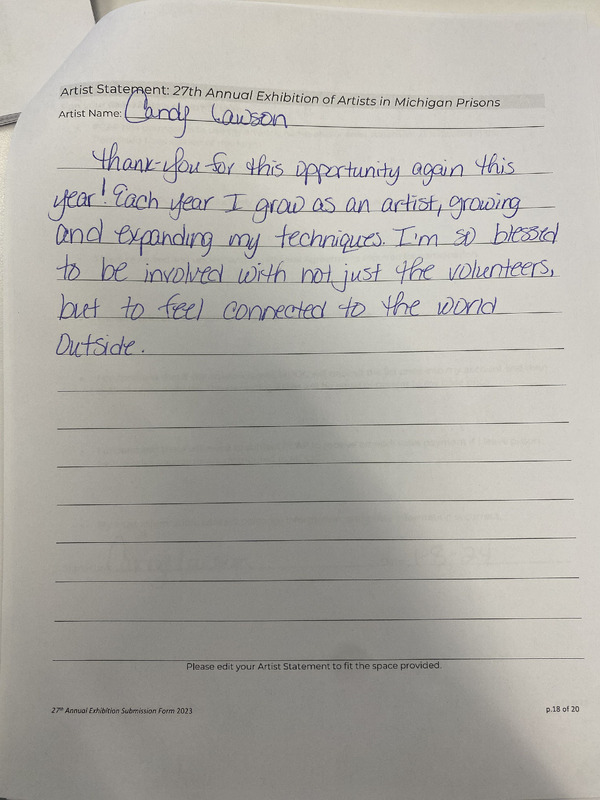 Artist Statement: 27th Annual Exhibition of Artists in Michigan Prisons
Artist Name: Candy Lawson
Thank-you for this opportunity again this
year! Each year I grow as an artist, growing
and expanding my techniques. I'm so blessed
to be involved with not just the volunteers,
but to feel connected to the world
Outside.
Please edit your Artist Statement to fit the space provided.
27th Annual Exhibition Submission Form 2023
p.18 of 20